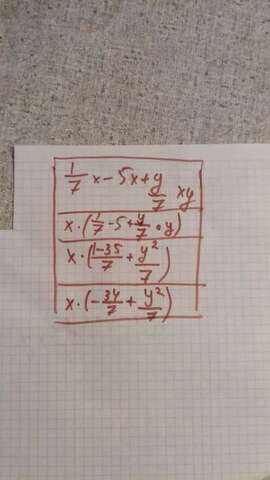 1/7 x - 5x + y/7 xy
x · (1/7 - 5 + y/7 · y)
x · (1-35/7 + y²/7)
x · (-34/7 + y²/7)